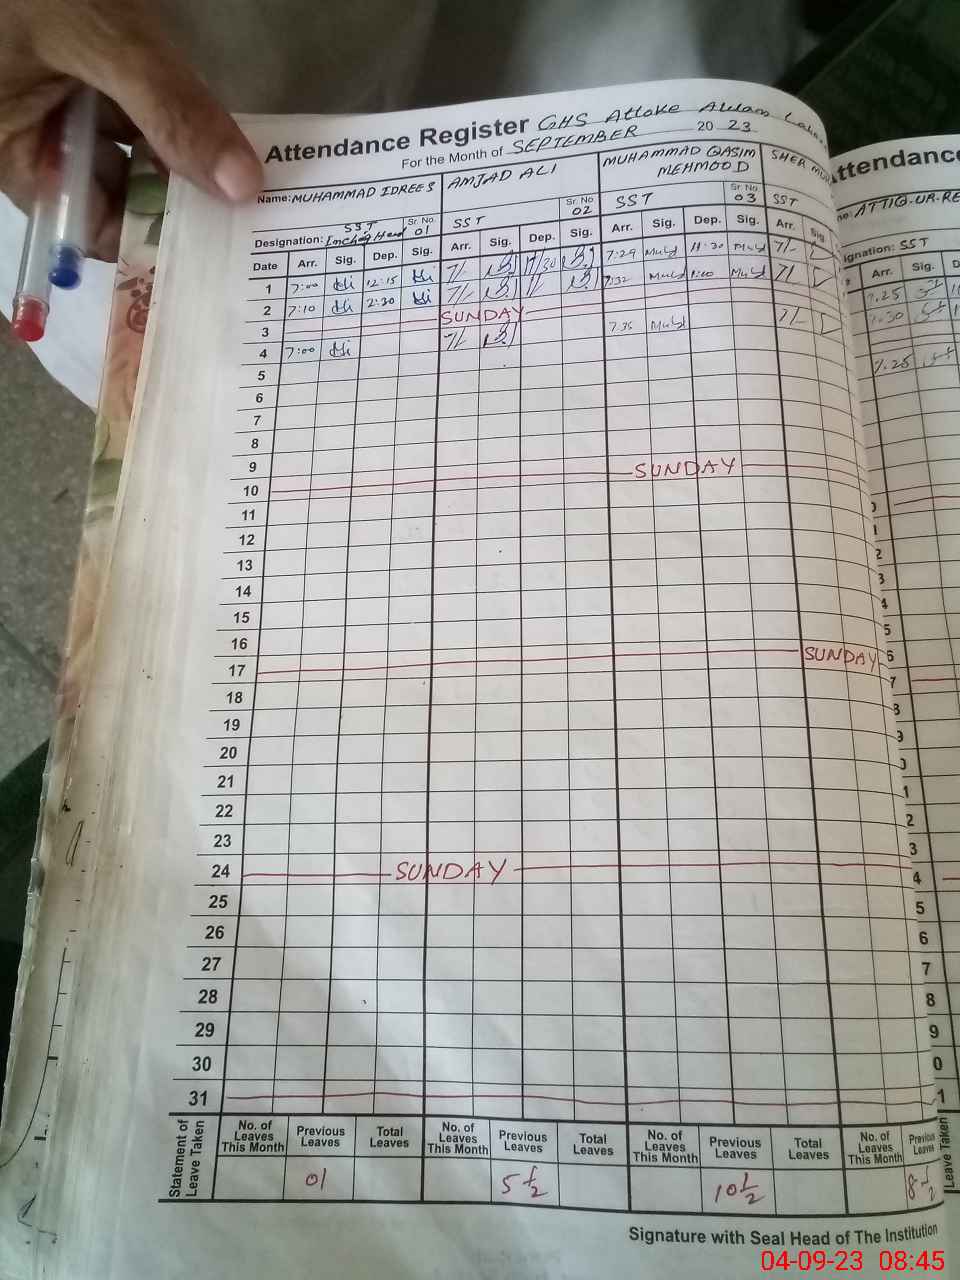 Attendance Register GHS Attoke Awan Lahore
For the Month of SEPTEMBER 2023
Name: MUHAMMAD IDREES AMJAD ALI MUHAMMAD QASIM MEHMOOD SHER
Designation: SST Incharg Head Sr. No. 01 SST Sr. No. 02 SST Sr. No. 03 SST
Date Arr. Sig. Dep. Sig. Arr. Sig. Dep. Sig. Arr. Sig. Dep. Sig. Arr. Sig.
1 7:00 12:15 7/- 11/30 7:29 11:30 7/-
2 7:10 2:30 7/- 7:32 1:00 7/-
3 SUNDAY
4 7:00 7/- 7:35 7/-
5
6
7
8
9
10 SUNDAY
11
12
13
14
15
16
17 SUNDAY
18
19
20
21
22
23
24 SUNDAY
25
26
27
28
29
30
31
Statement of Leave Taken
No. of Leaves This Month Previous Leaves Total Leaves No. of Leaves This Month Previous Leaves Total Leaves No. of Leaves This Month Previous Leaves Total Leaves No. of Leaves This Month Previous Leaves
01 5 1/2 10 1/2 8 1/2
Signature with Seal Head of The Institution
ttendance
ATTIQ-UR-RE
ignation: SST
Arr. Sig. D
7.25
7.30
7.25
Leave Taken
04-09-23 08:45